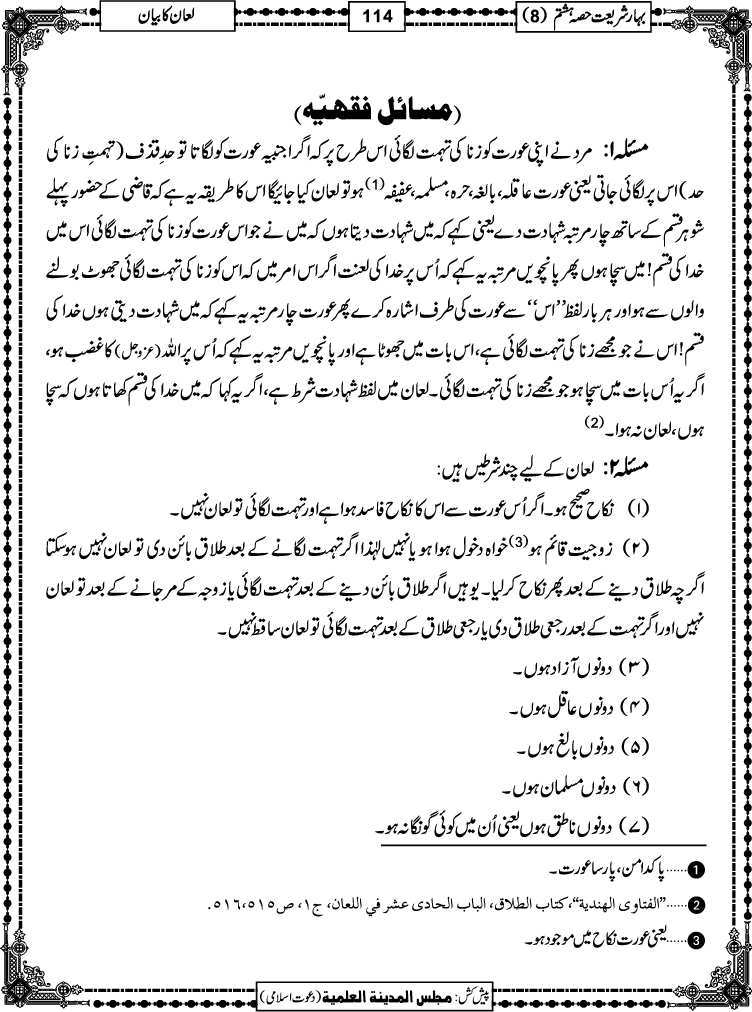 بہار شریعت حصہ ہشتم (8)
114
لعان کا بیان
(مسائل فقهيّه)
مسئلہ ۱: مرد نے اپنی عورت کو زنا کی تہمت لگائی اس طرح پر کہ اگر اجنبیہ عورت کو لگاتا تو حدِ قذف (تہمتِ زنا کی
حد) اس پر لگائی جاتی یعنی عورت عاقلہ، بالغہ، حرہ، مسلمہ، عفیفہ(1) ہو تو لعان کیا جائیگا اس کا طریقہ یہ ہے کہ قاضی کے حضور پہلے
شوہر قسم کے ساتھ چار مرتبہ شہادت دے یعنی کہے کہ میں شہادت دیتا ہوں کہ میں نے جو اس عورت کو زنا کی تہمت لگائی اس میں
خدا کی قسم! میں سچا ہوں پھر پانچویں مرتبہ یہ کہے کہ اُس پر خدا کی لعنت اگر اس امر میں کہ اس کو زنا کی تہمت لگائی جھوٹ بولنے
والوں سے ہو اور ہر بار لفظ ''اس'' سے عورت کی طرف اشارہ کرے پھر عورت چار مرتبہ یہ کہے کہ میں شہادت دیتی ہوں خدا کی
قسم! اس نے جو مجھے زنا کی تہمت لگائی ہے، اس بات میں جھوٹا ہے اور پانچویں مرتبہ یہ کہے کہ اُس پر اللہ (عزوجل) کا غضب ہو،
اگر یہ اُس بات میں سچا ہو جو مجھے زنا کی تہمت لگائی۔ لعان میں لفظ شہادت شرط ہے، اگر یہ کہا کہ میں خدا کی قسم کھاتا ہوں کہ سچا
ہوں، لعان نہ ہوا۔(2)
مسئلہ ۲: لعان کے لیے چند شرطیں ہیں:
(۱) نکاح صحیح ہو۔ اگر اُس عورت سے اس کا نکاح فاسد ہوا ہے اور تہمت لگائی تو لعان نہیں۔
(۲) زوجیت قائم ہو(3) خواہ دخول ہوا ہو یا نہیں لہٰذا اگر تہمت لگانے کے بعد طلاق بائن دی تو لعان نہیں ہوسکتا
اگرچہ طلاق دینے کے بعد پھر نکاح کرلیا۔ یوہیں اگر طلاق بائن دینے کے بعد تہمت لگائی یا زوجہ کے مر جانے کے بعد تو لعان
نہیں اور اگر تہمت کے بعد رجعی طلاق دی یا رجعی طلاق کے بعد تہمت لگائی تو لعان ساقط نہیں۔
(۳) دونوں آزاد ہوں۔
(۴) دونوں عاقل ہوں۔
(۵) دونوں بالغ ہوں۔
(۶) دونوں مسلمان ہوں۔
(۷) دونوں ناطق ہوں یعنی اُن میں کوئی گونگا نہ ہو۔
1......پاکدامن، پارسا عورت۔
2......"الفتاوی الهندية"، کتاب الطلاق، الباب الحادی عشر في اللعان، ج۱، ص۵۱۵،۵۱۶.
3......یعنی عورت نکاح میں موجود ہو۔
پیش کش: مجلس المدينة العلمية (دعوت اسلامی)